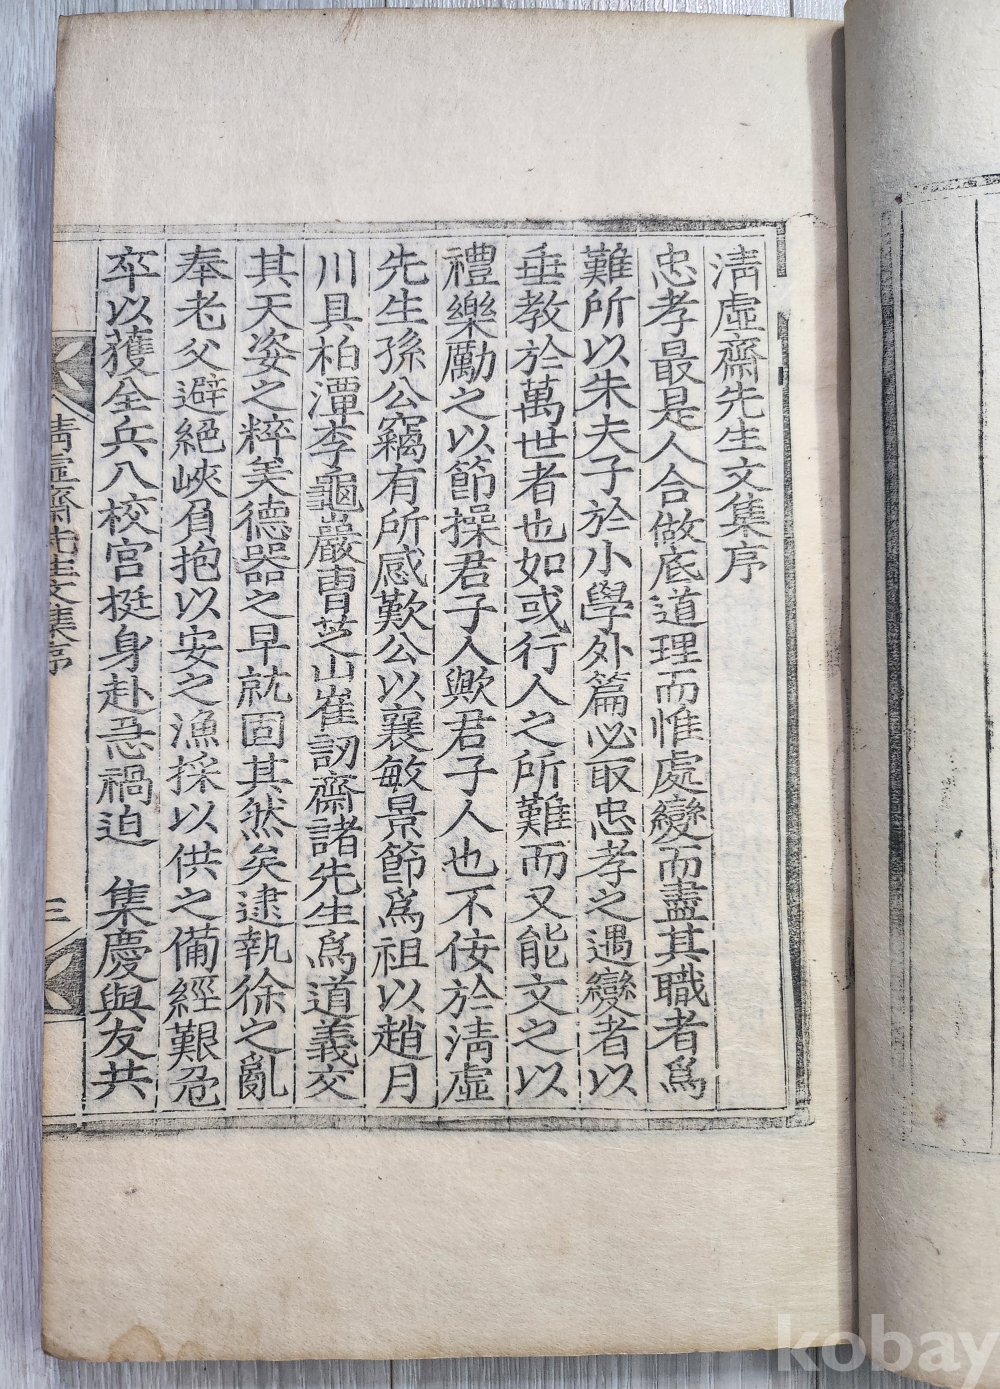 淸虛齋先生文集序
忠孝最是人合做底道理而惟處變而盡其職者爲
難所以朱夫子於小學外篇必取忠孝之遇變者以
垂教於萬世者也如或行人之所難而又能文之以
禮樂勵之以節操君子人歟君子人也不侫於淸虛
先生孫公竊有所感歎公以襄敏景節爲祖以趙月
川具柏潭李龜巖曺芝山崔訒齋諸先生爲道義交
其天姿之粹美德器之早就固其然矣逮執徐之亂
奉老父避絕峽負抱以安之漁採以供之備經艱危
卒以獲全兵入校宮挺身赴急禍迫 集慶與友共
淸虛齋先生文集序
三
kobay